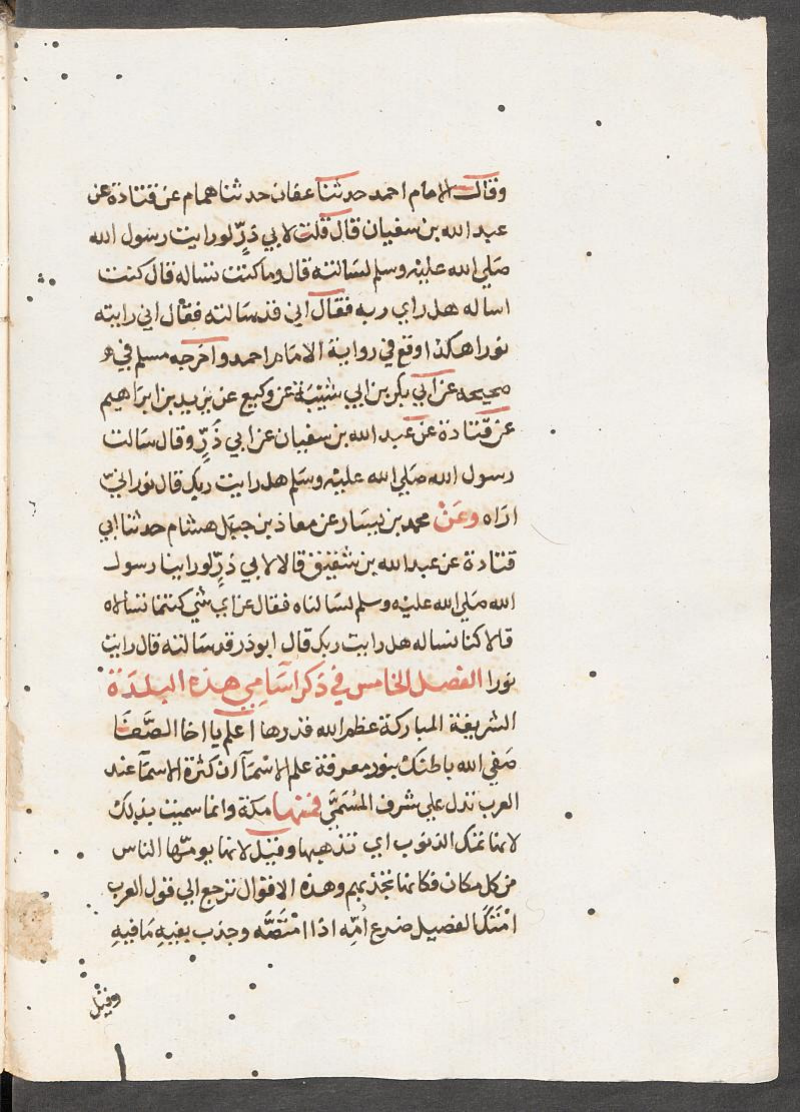 وقال الامام احمد حدثنا عفان حدثنا همام عن قتادة عن
عبد الله بن سفيان قال قلت لابي ذرّ لو رايت رسول الله
صلي الله عليه وسلم لسالته قال وما كنت تساله قال كنت
اساله هل راي ربه فقال اني قد سالته فقال اني رايته
نورا هكذا وقع في رواية الامام احمد واخرجه مسلم في
صحيحه عن ابي بكر بن ابي شيبة عن وكيع عن يزيد بن ابراهيم
عن قتادة عن عبد الله بن سفيان عن ابي ذَرّ وقال سالت
رسول الله صلي الله عليه وسلم هل رايت ربك قال نور انّي
اراه وعَنْ محمد بن بيسار عن معاذ بن جبل هشام حدثنا ابي
قتادة عن عبد الله بن شقيق قالا لابي ذرّ لو راينا رسول
الله صلي الله عليه وسلم لسالناه فقال عن اي شي كنتما تسالاه
قالا كنا نساله هل رايت ربك قال ابو ذر قد سالته قال رايت
نورا الفصل الخامس في ذكر اسامي هذه البلدة
الشريفة المباركة عظم الله قدرها اعلم يا اخا الصَّفَا
صفي الله باطنك بنور معرفة علم الاسمآ ان كثرة الاسمآ عند
العرب تدل علي شرف المُسَمَّي فمنها مكة وانما سميت بذلك
لانها تمك الذنوب اي تذهبها وقيل لانها يومّها الناس
من كل مكان فكانها تجذبهم وهذه الاقوال ترجع الي قول العرب
امْتَكَّ الفصيل ضرع اُمِّه اذا امْتَصَّه وجذب بفيهِ مَا فيهِ
وقيل